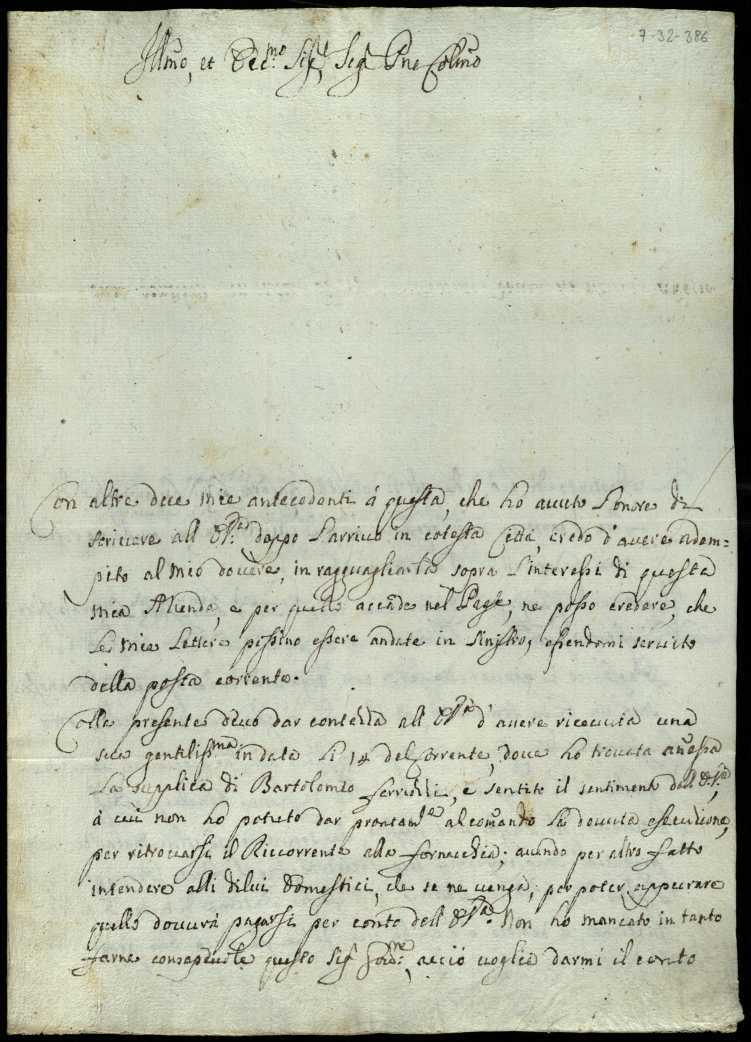 7-32-386
Illmo, et Ecc.mo Sigr, Sigr Pne Colmo
Con altre dece mie antecedenti á questa, che ho avuto l'onore di
scrivere all' V.ª doppo l'arrivo in cotesta Città, credo d'avere adem=
pito al mio dovere, in ragguagliarla sopra l'interessi di questa
mia Azienda, e per quello accade nel Paese, ne posso credere, che
le mie lettere possino essere andate in sinistro, essendomi servito
della posta corrente.
Colla presente devo dar contezza all' V.ª d'avere ricevuta una
sua gentilisma in data li 14 del corrente, dove ho trovata annessa
la supplica di Bartolomeo, e sentito il sentimento dell' V.ª,
á cui non ho potuto dar prontamte al comando la dovuta esecuzione,
per ritrovarsi il Riccorrente alla fornacchia; avendo per altro fatto
intendere alli dilui Domestici, che se ne venga, per poter appurare
quello dovrà pagarsi per conto dell' V.ª. Non ho mancato in tanto
farne consapevole questo Sigr, acció voglia darmi il conto